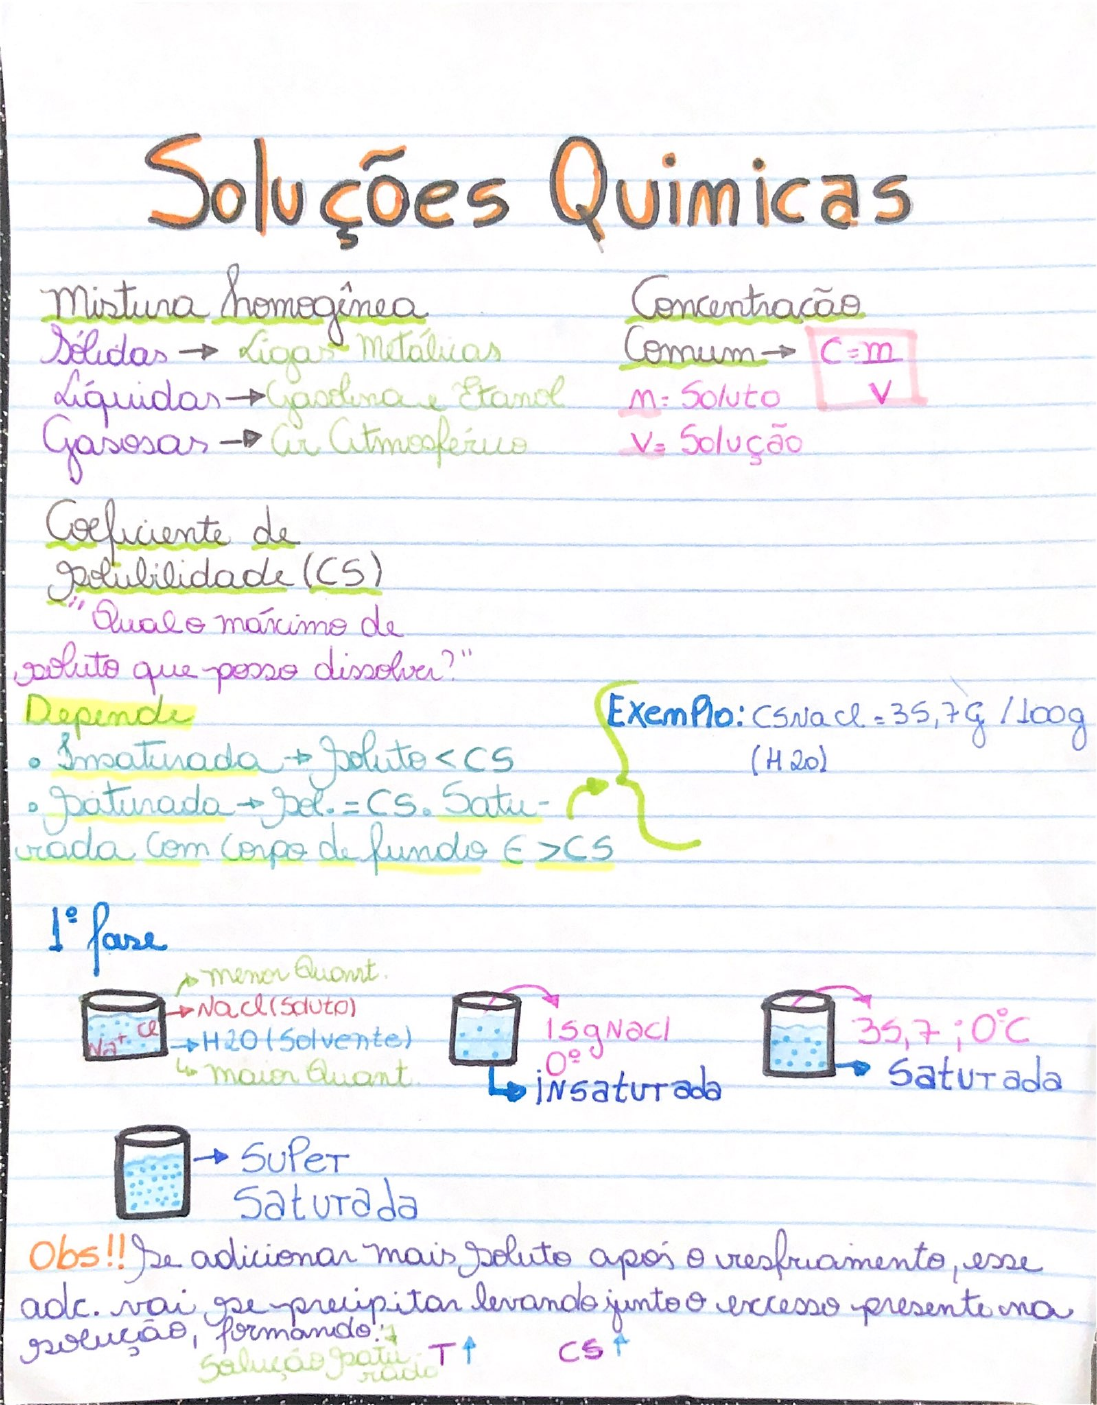 Soluções Quimicas
Mistura homogênea
Sólidas → Ligas Metálicas
Líquidas → Gasolina e Etanol
Gasosas → Ar Atmosférico
Concentração
Comum → C=m
V
m= Soluto
V= Solução
Coeficiente de
solubilidade (CS)
"Qual o máximo de
soluto que posso dissolver?"
Depende
• Insaturada → soluto < CS
• saturada → sol. = CS. Satu-
rada com corpo de fundo É >CS
Exemplo: CSNacl = 35,7g /100g
(H2O)
1º fase
menor Quant.
Nacl (soluto)
H2O (Solvente)
maior Quant.
Na+ Cl-
15g Nacl
0º
insaturada
35,7 ; 0°C
Saturada
Super
Saturada
Obs!! Se adicionar mais soluto após o resfriamento, esse
adc. vai se precipitar levando junto o excesso presente na
solução, formando:
Solução satu-
rada
T↑ CS↑